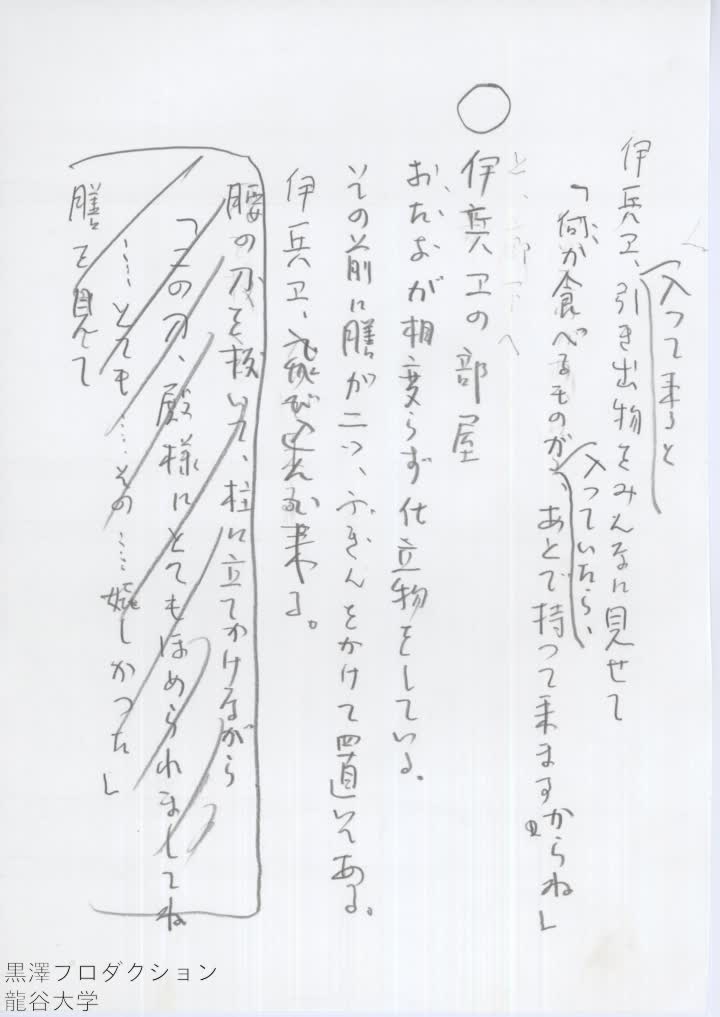 入って来ると
伊兵ヱ、引き出物をみんなに見せて
入っていたら、
「何か食べるものが、あとで持って来まするからね」
伊兵ヱの部屋
おたよが相変らず仕立物をしている。
その前に膳が二つ、ふきんをかけて置いてある。
伊兵ヱ、来る。
腰の刀を抜いて、柱に立てかけながら
「この刀、殿様にとてもほめられましてね
……とても……その……嬉しかった」
膳を見て
黒澤プロダクション
龍谷大学